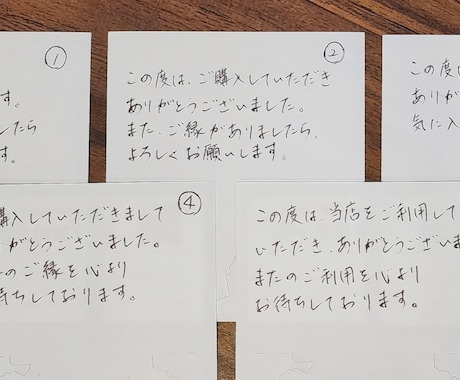 ①
す。
したら
す。
②
この度は、ご購入していただき
ありがとうございました。
また、ご縁がありましたら、
よろしくお願いします。
この度は
ありが
気に入
④
購入していただきまして
がとうございました。
のご縁を心より
待ちしております。
この度は、当店をご利用して
いただき、ありがとうございま
またのご利用を心より
お待ちしております。